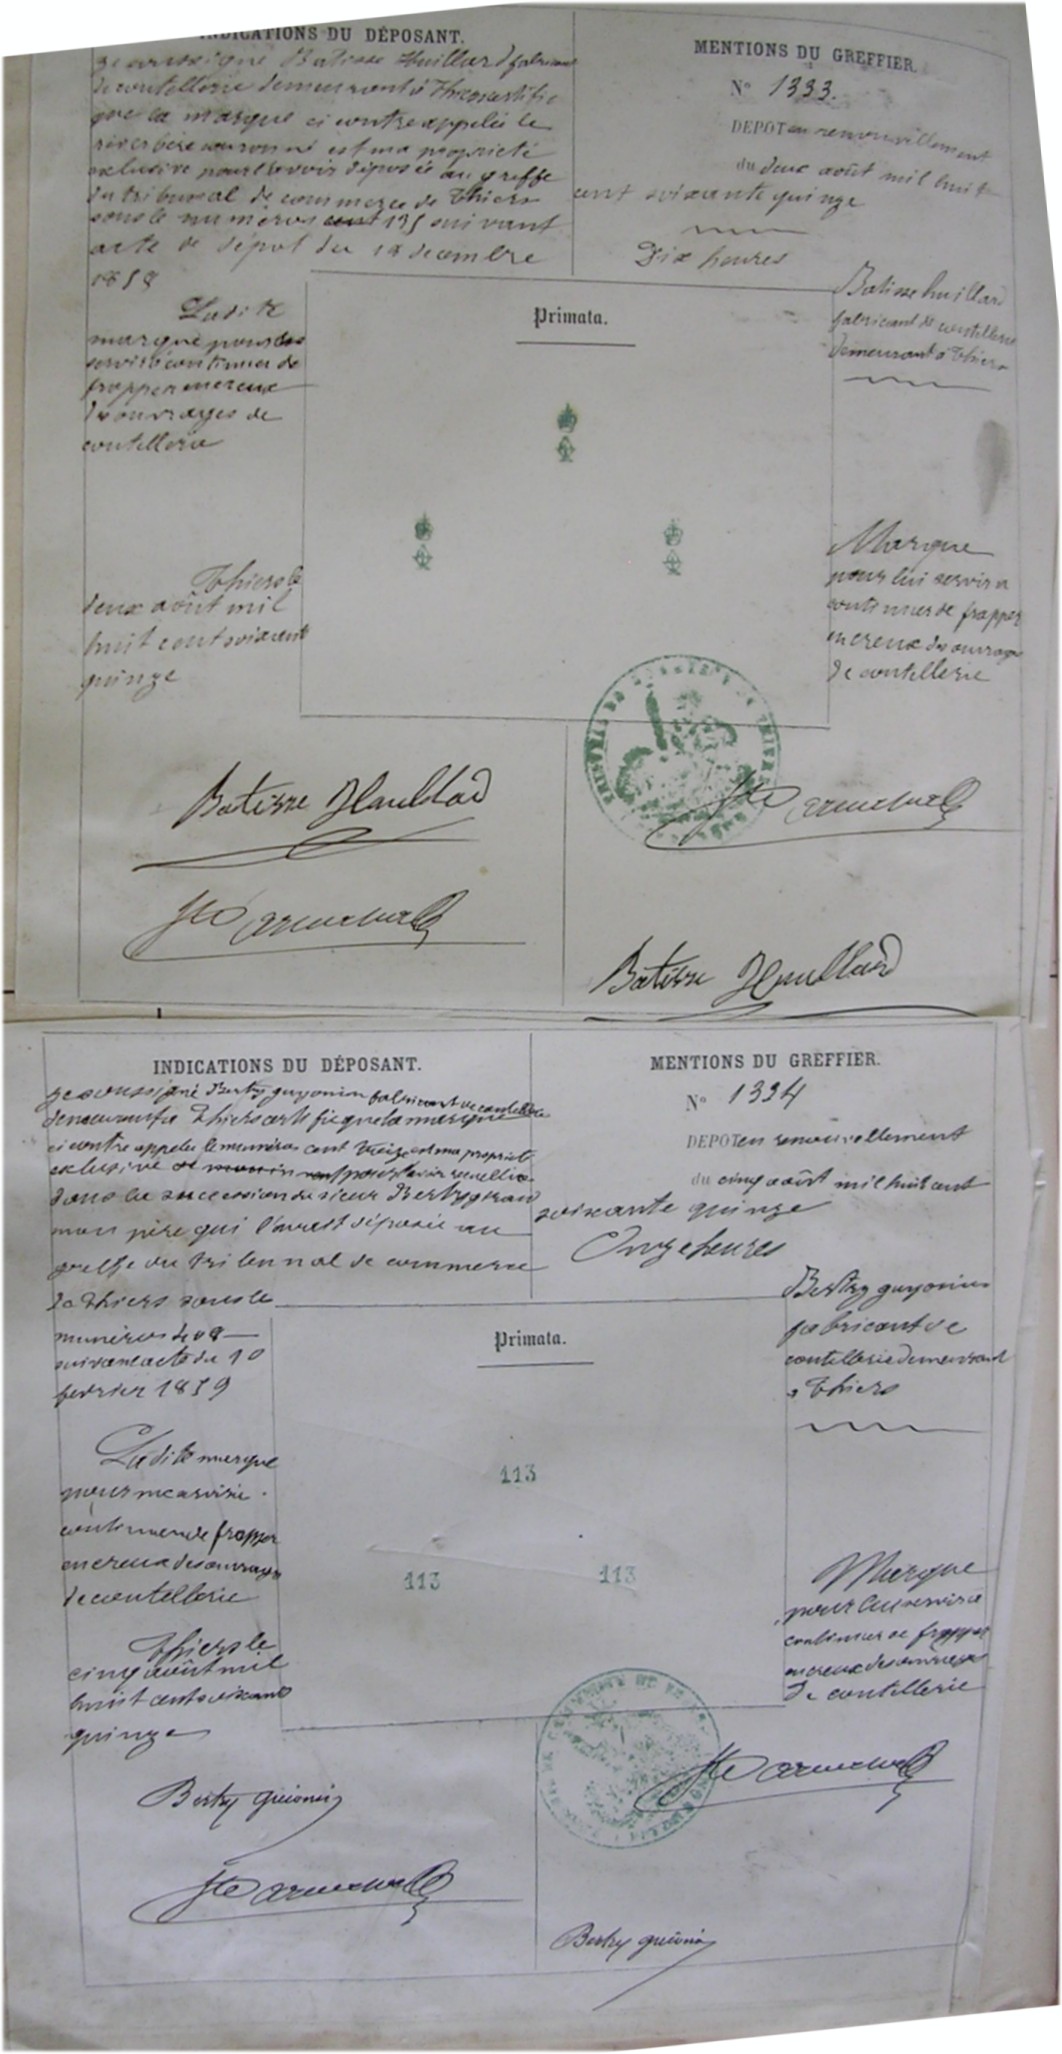 INDICATIONS DU DÉPOSANT.
Je soussigné Batisse Huillard fabricant
de coutellerie demeurant à Thiers certifie
que la marque ci contre appelée le
réverbère couronné est ma propriété
exclusive pour l'avoir déposée au greffe
du tribunal de commerce de Thiers
sous le numéros 135 suivant
acte de dépot du 18 decembre
1858
Ladite
marque pour
servir à continuer de
frapper en creux
des ouvrages de
coutellerie
Thiers le
deux août mil
huit cent soixante
quinze
MENTIONS DU GREFFIER.
N° 1333.
DEPOT en renouvillement
du deux août mil huit
cent soixante quinze
Dix heures
Batisse huillard
fabricant de coutellerie
demeurant à Thiers
Primata.
Marque
pour lui servir a
continuer de frapper
en creux des ouvrages
de coutellerie
Batisse Huillard
Batisse Huillard
INDICATIONS DU DÉPOSANT.
Je soussigné Bertry guyonin fabricant de coutellerie
demeurant a Thiers certifie que la marque
ci contre appelée le numéros cent treize est ma propriété
exclusive pour l'avoir recuellie
dans la succession du sieur Bertry
mon père qui l'avait déposée au
greffe du tribunnal de commerce
de Thiers sous le
numéros 408
suivant acte du 10
fevrier 1859
Ladite marque
pour me servir
continuer de frapper
en creux des ouvrages
de coutellerie
Thiers le
cinq août mil
huit cent soixante
quinze
MENTIONS DU GREFFIER.
N° 1334
DEPOT en renouvellement
du cinq août mil huit cent
soixante quinze
Onze heures
Bertry guyonin
fabricant de
coutellerie demeurant
a Thiers
Primata.
113
113 113
Marque
pour lui servir a
continuer de frapper
en creux des ouvrages
de coutellerie
Bertry guionin
Bertry guionin